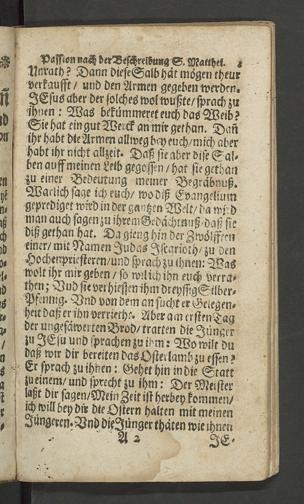 Passion nach der Beschreibung S. Matthei.
Unrath? Dann diese Salb hät mögen theur
verkaufft / und den Armen gegeben werden.
JEsus aber der solches wol wußte / sprach zu
ihnen: Was bekümmeret euch das Weib?
Sie hat ein gut Werck an mir gethan. Dañ
ihr habt die Armen allweg bey euch / mich aber
habt ihr nicht allzeit. Daß sie aber dise Sal-
ben auff meinen Leib gegossen / hat sie gethan
zu einer Bedeutung meiner Begräbnuß.
Warlich sage ich euch / wo diß Evangelium
geprediget wird in der gantzen Welt / da wird
man auch sagen zu ihrem Gedächtnuß / daß sie
diß gethan hat. Da gieng hin der Zwölfften
einer / mit Namen Judas Iscarioth / zu den
Hochenpriesteren / und sprach zu ihnen: Was
wolt ihr mir geben / so will ich ihn euch verra-
then; Und sie verhiessen ihm dreyssig Silber-
Pfennig. Und von dem an sucht er Gelegen-
heit daß er ihn verriethe. Aber am ersten Tag
der ungesäwerten Brod / tratten die Jünger
zu JEsu und sprachen zu ihm: Wo wilt du
daß wir dir bereiten das Osterlamb zu essen?
Er sprach zu ihnen: Gehet hin in die Statt
zu einem / und sprecht zu ihm: Der Meister
laßt dir sagen / Mein Zeit ist herbey kommen /
ich will bey dir die Ostern halten mit meinen
Jüngeren. Und die Jünger thäten wie ihnen
A 2 JE-